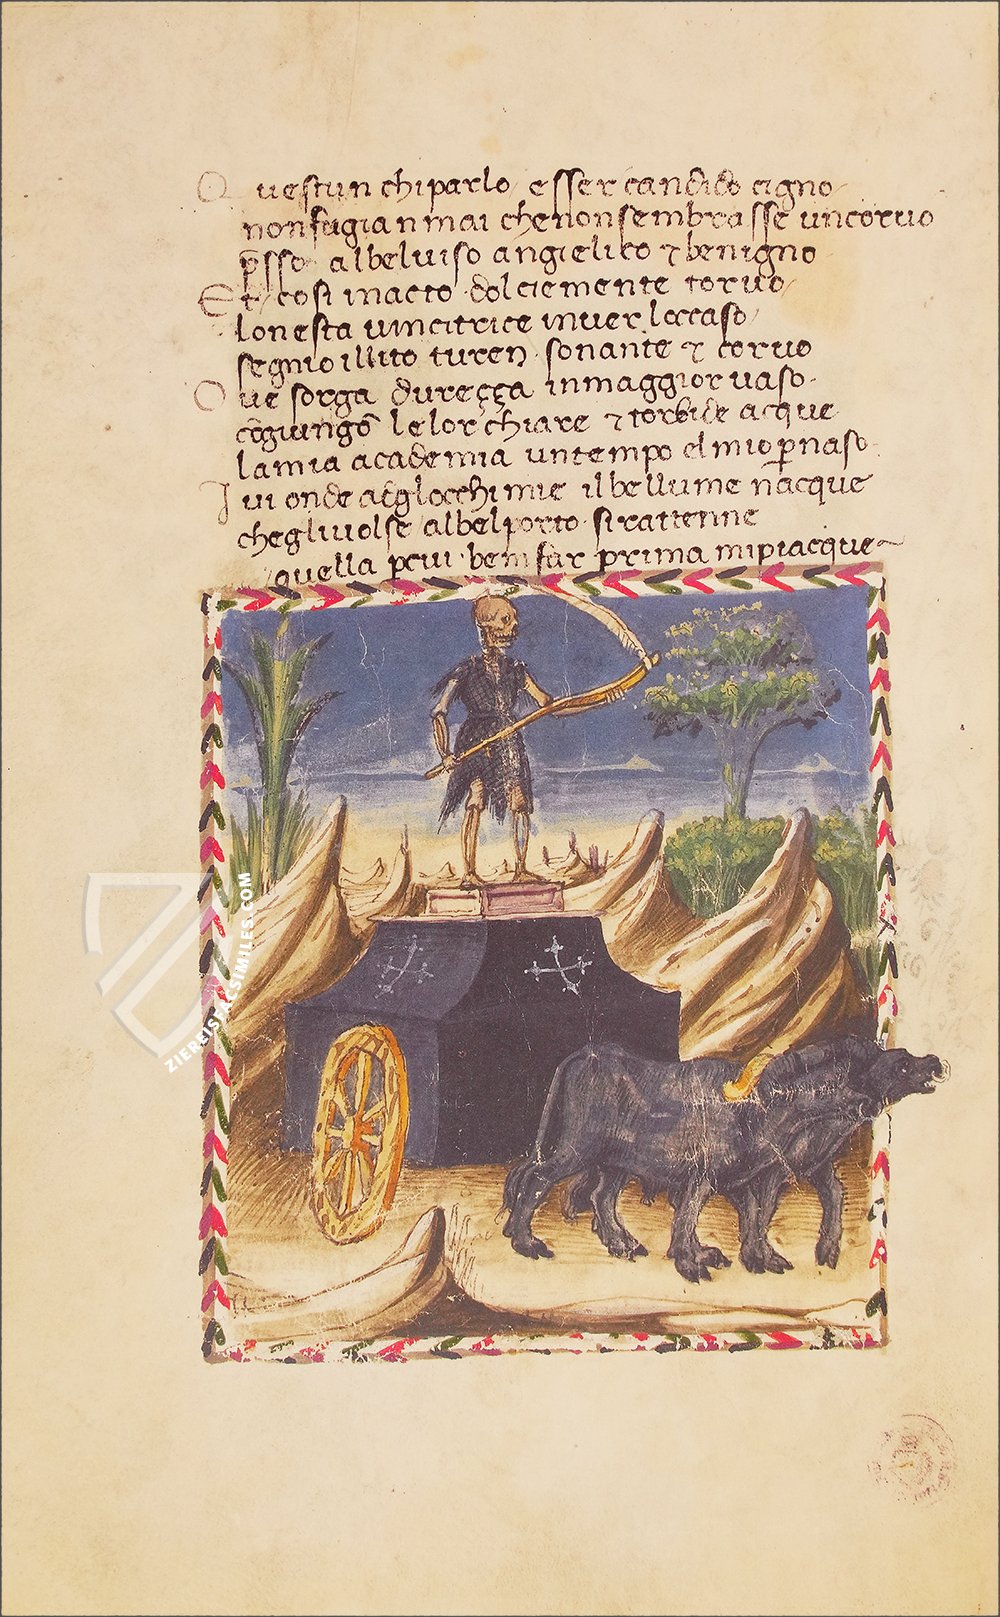 Questun chi parlo esser candido cigno
non fugian mai che non sembrasse un coruo
psso al bel uiso angielico & benigno
Et cosi in acto dolciemente toruo
lonesta uincitrice inuer loccaso
segnio illito turen sonante & coruo
Oue sorga dureçça in maggior uaso
cōgiungō le lor chiare & torbide acque
la mia academia un tempo el mio pnaso
Iui onde agliocchi mie il bel lume nacque
che gli uolse al bel porto si rattenne
quella pcui ben far prima mi piacque
ZIEREISFACSIMILES.COM